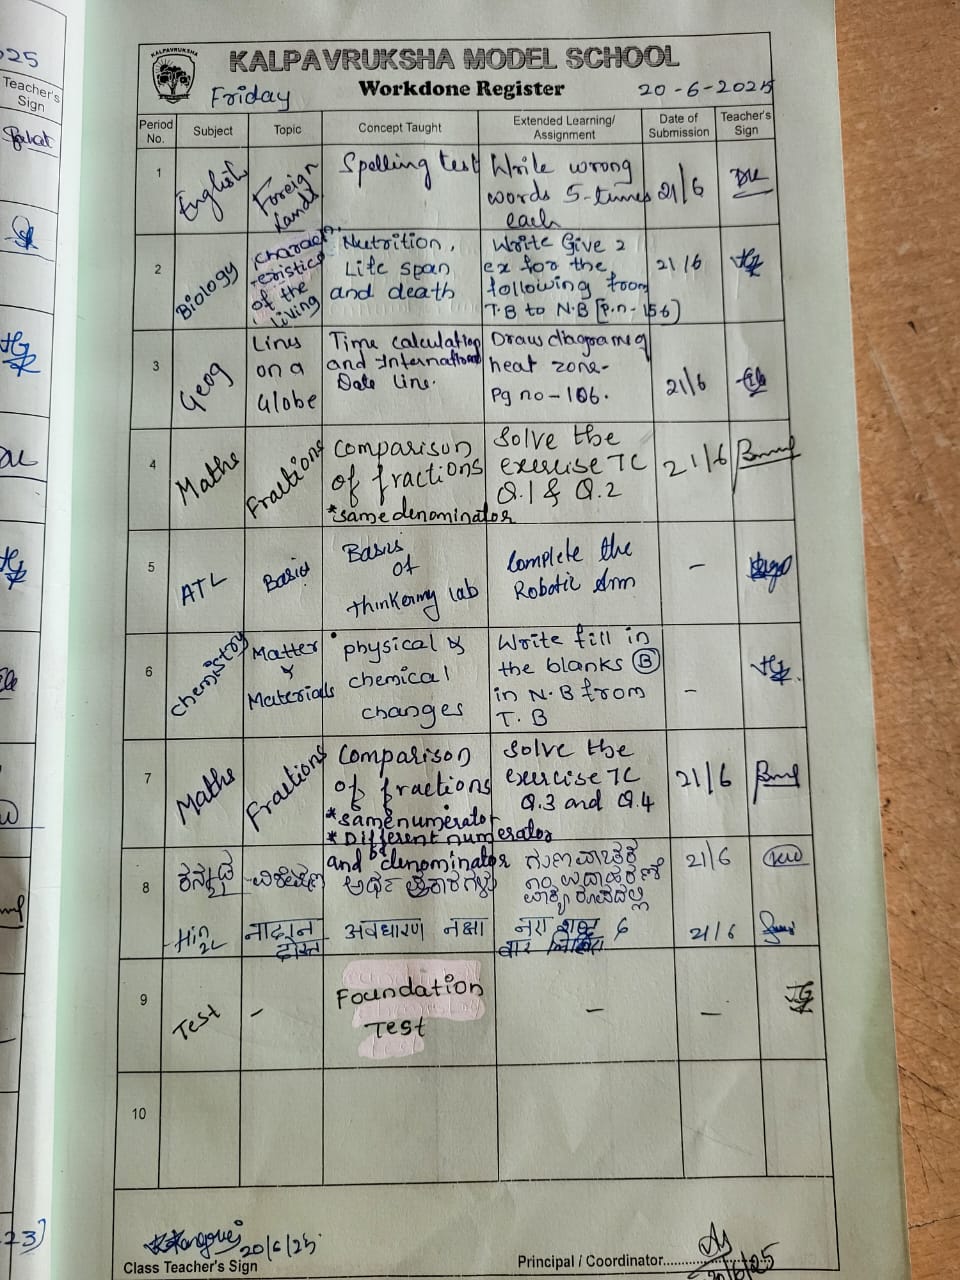 025
Teacher's
Sign
KALPAVRUKSHA
KALPAVRUKSHA MODEL SCHOOL
Workdone Register
Friday
20-6-2025
Period No. Subject Topic Concept Taught Extended Learning/ Assignment Date of Submission Teacher's Sign
1 English Foreign Lands Spelling test Write wrong words 5-times each 21/6
2 Biology charact-eristics of the living Nutrition, Life span and death Write Give 2 ex for the following from T.B to N.B [p.n-156] 21/6
3 Geog Lines on a Globe Time calculation and International Date Line. Draw diagram of heat zone- Pg no-106. 21/6
4 Maths Fractions Comparison of fractions *same denominator Solve the exercise 7C Q.1 & Q.2 21/6
5 ATL Basics Basics of thinkering lab Complete the Robotic Arm -
6 Chemistry Matter & Materials physical & chemical changes Write fill in the blanks (B) in N.B from T.B -
7 Maths Fractions Comparison of fractions *same numerator *Different numerator and denominator Solve the exercise 7C Q.3 and Q.4 21/6
8 ಕನ್ನಡ ವಿಶೇಷಣ ಅರ್ಥ ಪ್ರಕಾರಗಳು ಗುಣವಾಚಕ ೧೦ ಉದಾಹರಣೆ 21/6
Hin 2L नादान दोस्त अवधारण नक्षा 6 बार 21/6
9 Test - Foundation Test - -
10
20/6/25
Class Teacher's Sign
Principal / Coordinator
20/6/25